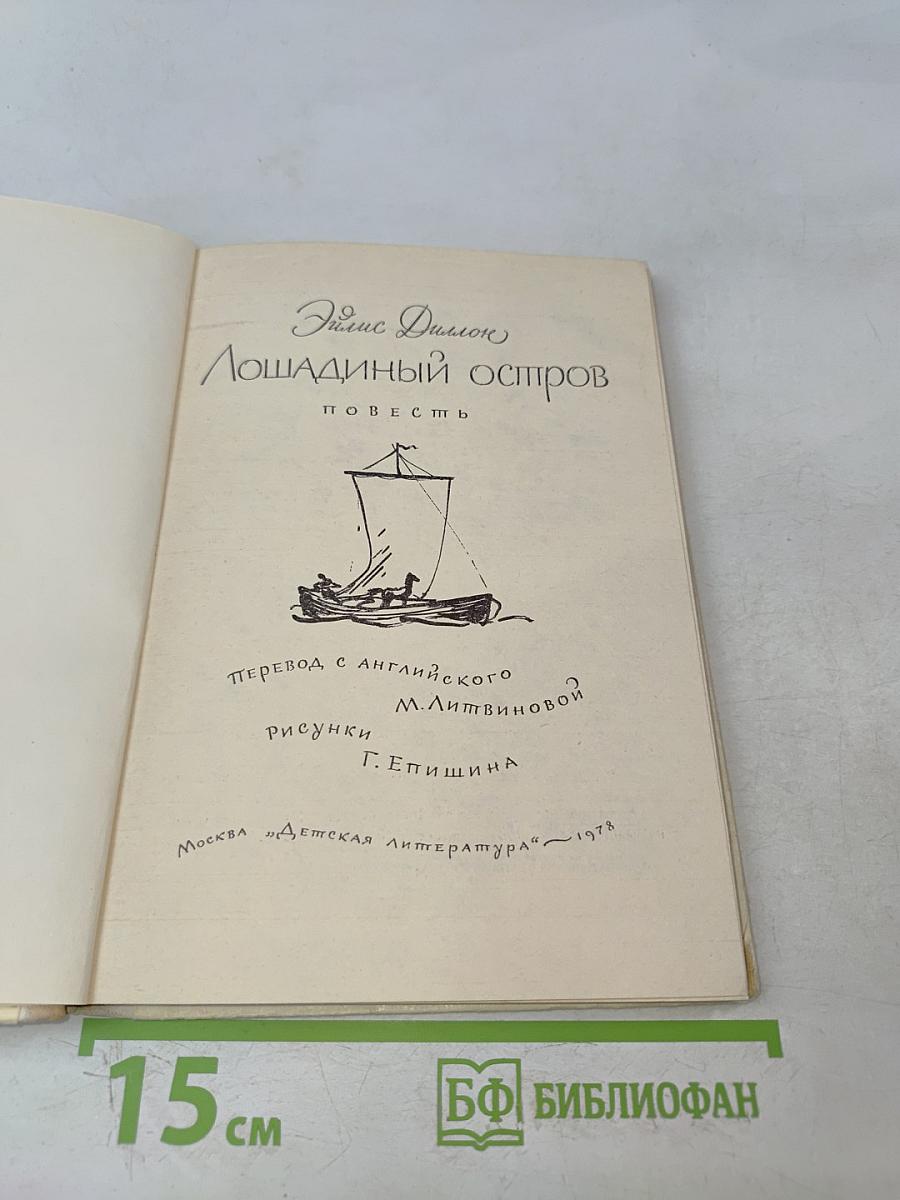 Эйлис Диллон
Лошадиный остров
повесть
Перевод с английского
М. Литвиновой
Рисунки
Г. Епишина
Москва „Детская литература“ — 1978
15 см
БФ БИБЛИОФАН